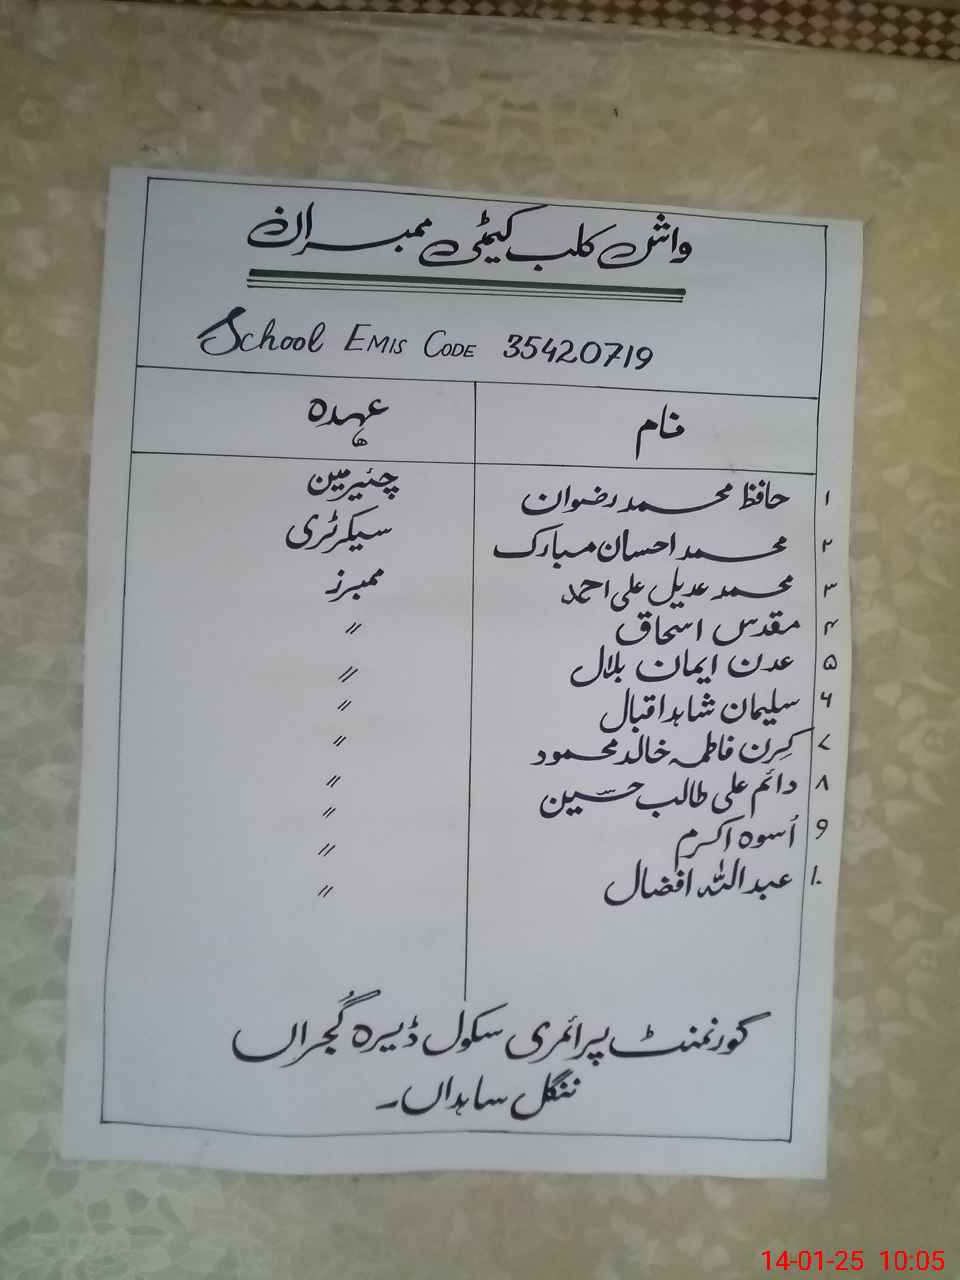 واش کلب کمیٹی ممبران
School EMIS CODE 35420719
نام عہدہ
۱ حافظ محمد رضوان چئیرمین
۲ محمد احسان مبارک سیکرٹری
۳ محمد عدیل علی احمد ممبرز
۴ مقدس اسحاق 〃
۵ عدن ایمان بلال 〃
۶ سلیمان شاہد اقبال 〃
۷ کِرن فاطمہ خالد محمود 〃
۸ دائم علی طالب حسین 〃
〃
۹ اُسوہ اکرم 〃
۱۰ عبداللہ افضال 〃
گورنمنٹ پرائمری سکول ڈیرہ گُجراں
ننگل ساہداں۔
14-01-25 10:05